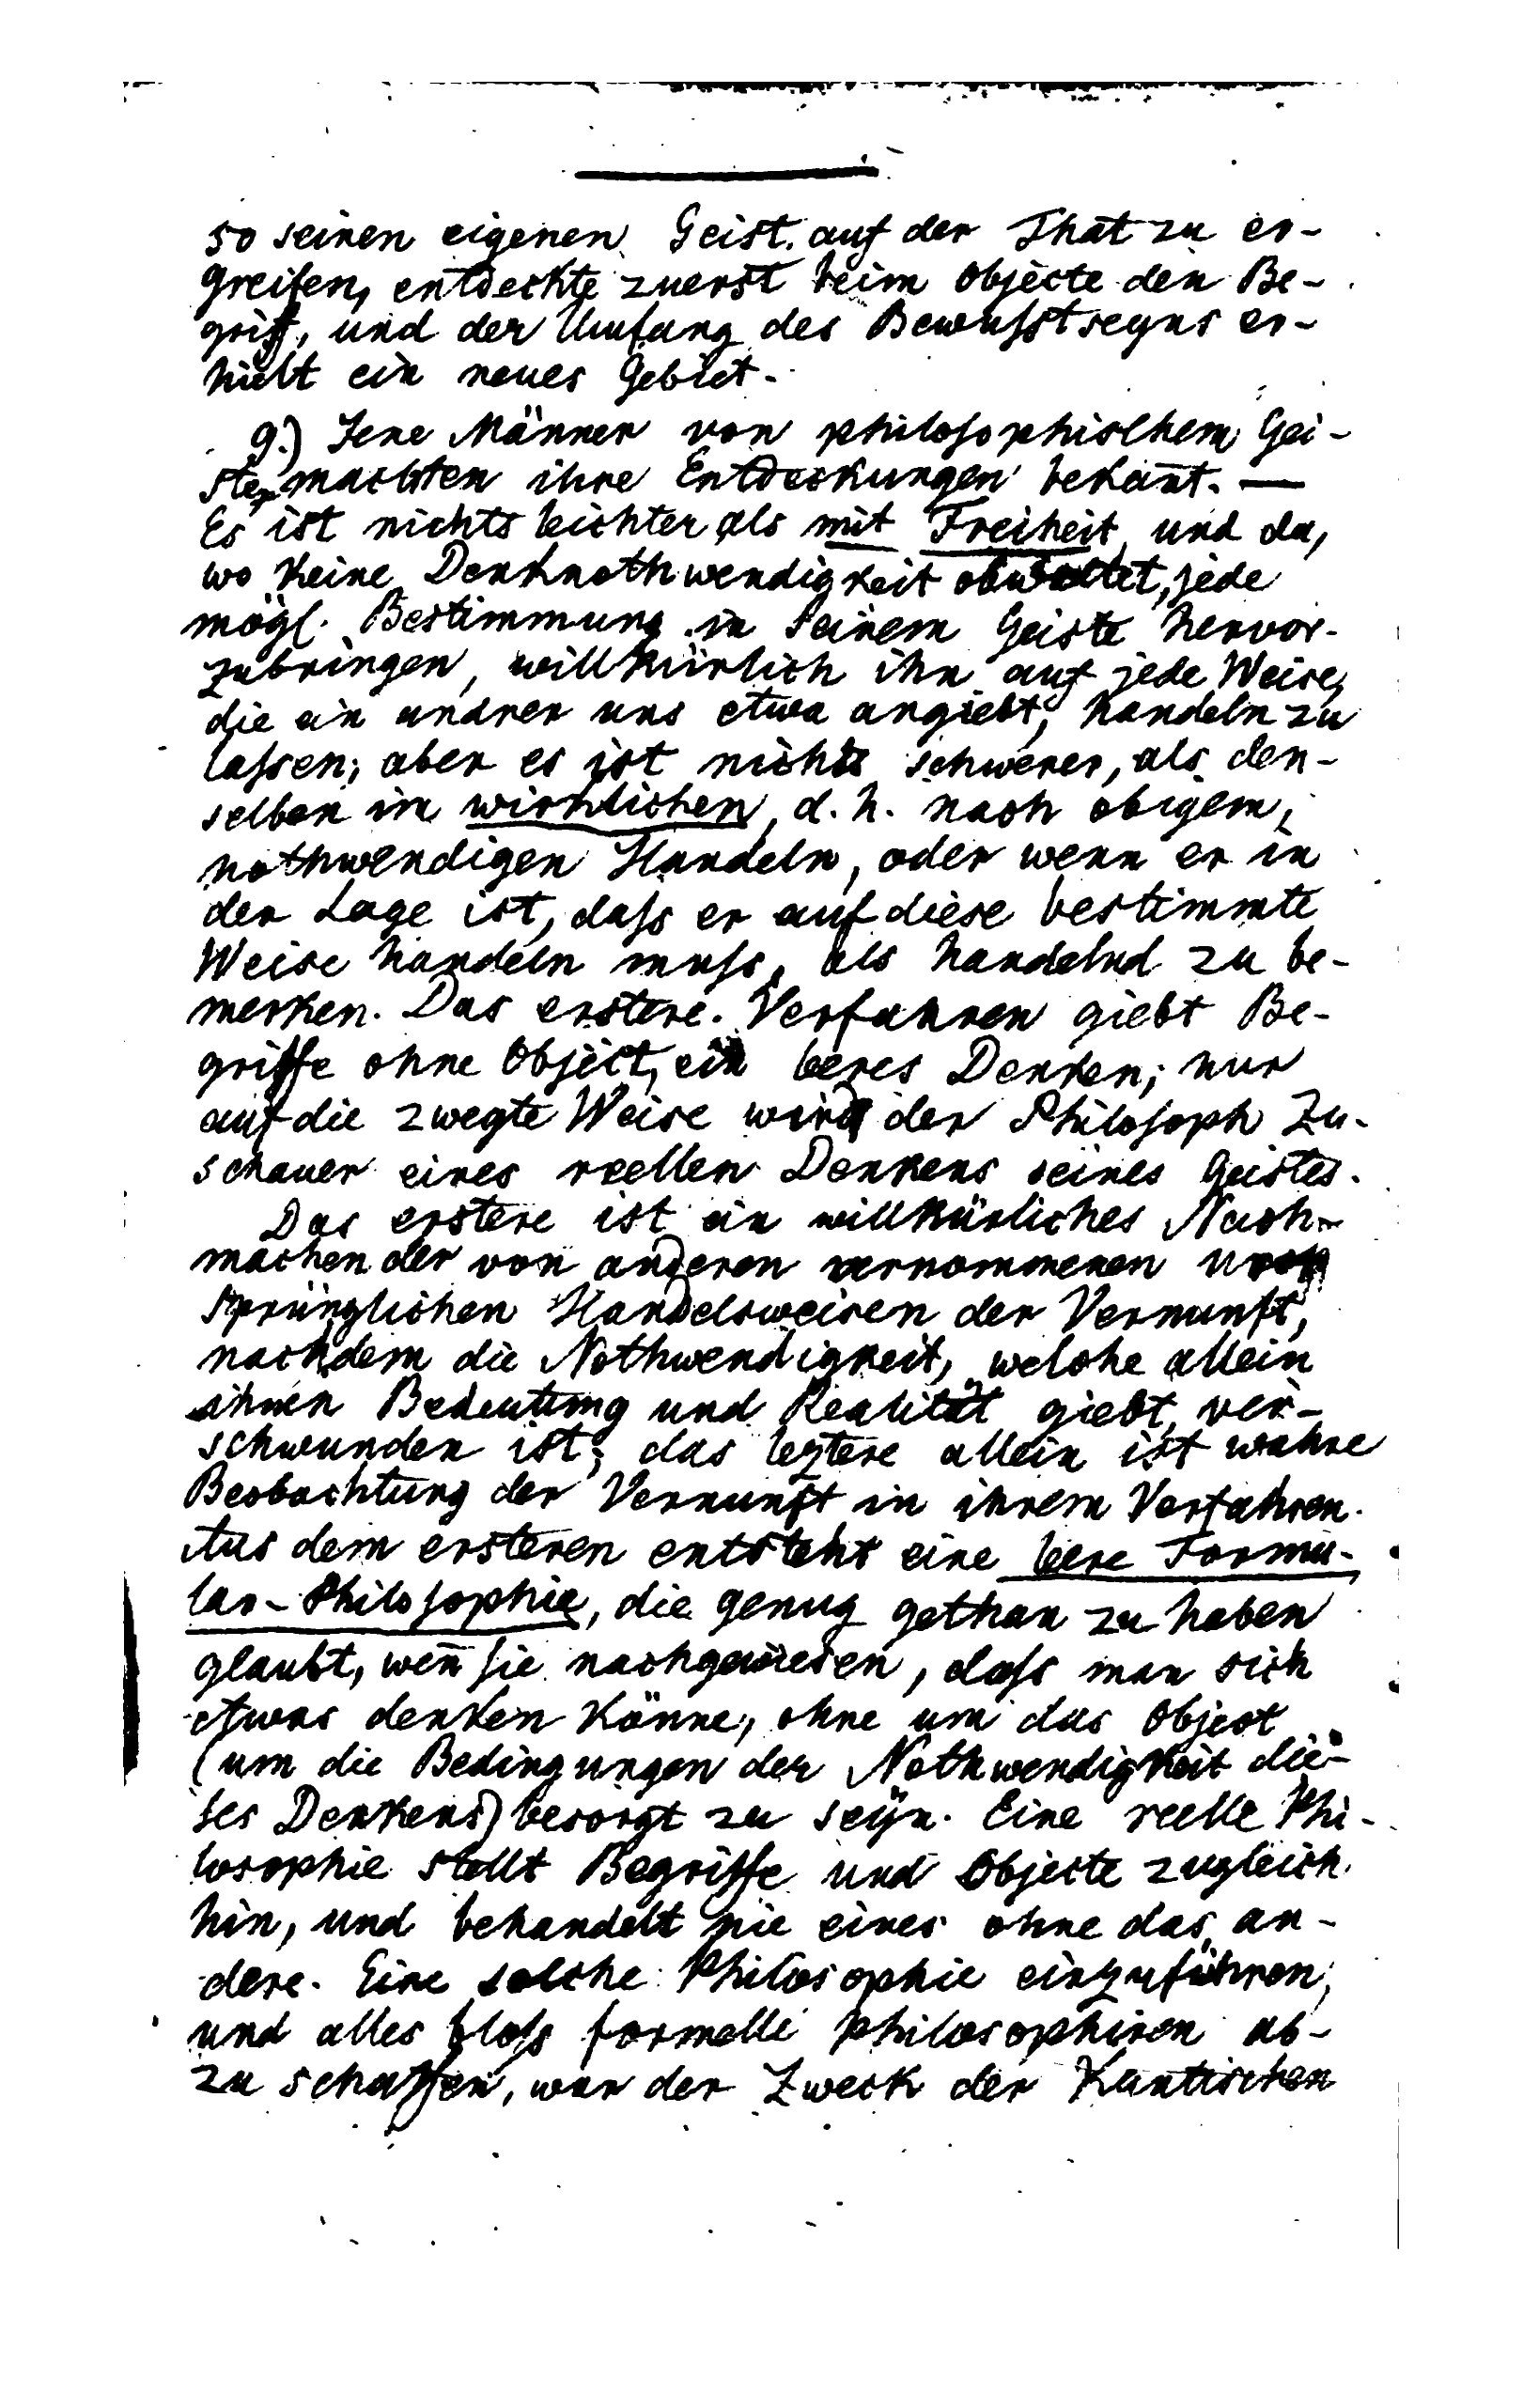 so seinen eigenen Geist auf der That zu er-
greifen, entdeckte zuerst beim Objecte den Be-
griff, und der Umfang des Bewußtseyns er-
hielt ein neues Gebiet.
9.) Jene Männer von philosophischem Gei-
ste, machten ihre Entdeckungen bekañt. —
Es ist nichts leichter als mit Freiheit, und da,
wo keine Denknothwendigkeit obwaltet, jede
mögl. Bestimmung in seinem Geiste hervor-
zubringen, willkürlich ihn auf jede Weise,
die ein andrer uns etwa angiebt, handeln zu
laßen; aber es ist nichts schwerer, als den-
selben im wirklichen, d. h. nach obigem,
nothwendigen Handeln, oder wenn er in
der Lage ist, daß er auf diese bestimmte
Weise handeln muß, als handelnd zu be-
merken. Das erstere Verfahren giebt Be-
griffe ohne Object, ein leeres Denken; nur
auf die zweyte Weise wird der Philosoph Zu-
schauer eines reellen Denkens seines Geistes.
Das erstere ist ein willkürliches Nach-
machen der von anderen vernommenen ur
sprünglichen Handelsweisen der Vernunft,
nachdem die Nothwendigkeit, welche allein
ihnen Bedeutung und Realität giebt, ver-
schwunden ist; das leztere allein ist wahre
Beobachtung der Vernunft in ihrem Verfahren.
Aus dem ersteren entsteht eine leere Formu-
lar-Philosophie, die genug gethan zu haben
glaubt, weñ sie nachgewiesen, daß man sich
etwas denken könne, ohne um das Object
(um die Bedingungen der Nothwendigkeit die-
ses Denkens) besorgt zu seyn. Eine reelle Phi-
losophie stellt Begriffe und Objecte zugleich
hin, und behandelt nie eines ohne das an-
dere. Eine solche Philosophie einzuführen,
und alles bloß formelle philosophiren ab-
zu schaffen, war der Zweck der Kantischen